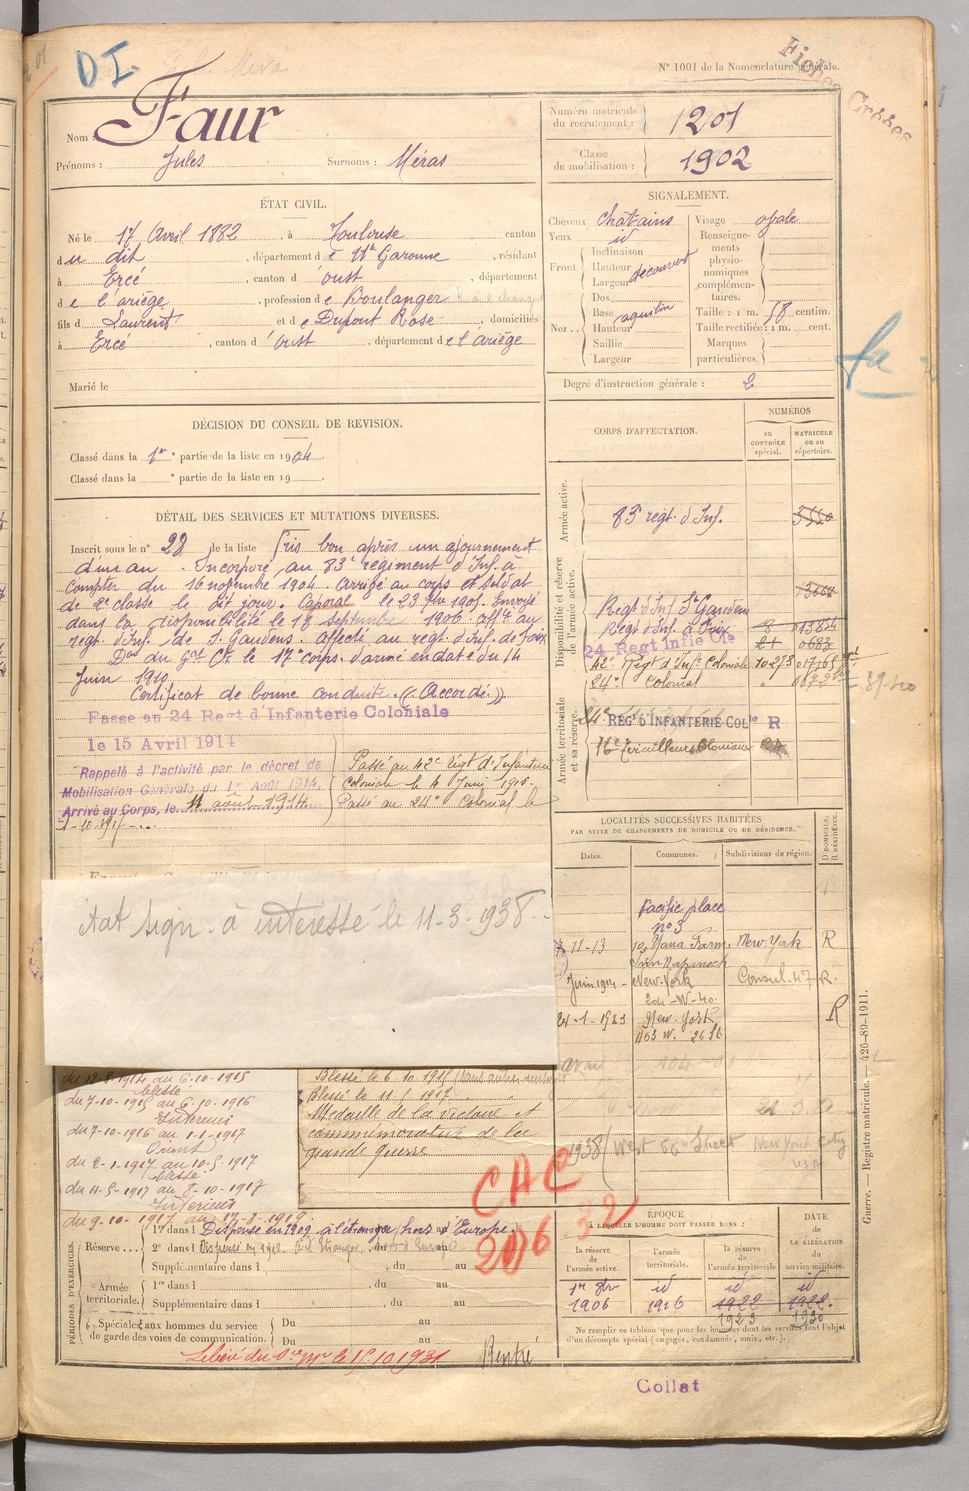 DI.
N° 1001 de la Nomenclature générale.
Fiches Grosses
Nom : Faur
Prénoms : Jules Surnoms : Méras
Numéro matricule du recrutement : 1201
Classe de mobilisation : 1902
ÉTAT CIVIL.
Né le 17 Avril 1882, à Toulouse canton
du dit, département de Hte Garonne, résidant
à Ercé, canton d'oust, département
de l'ariège, profession de Boulanger
fils de Laurent et de Dupont Rose, domiciliés
à Ercé, canton d'oust, département de l'ariège
Marié le
SIGNALEMENT.
Cheveux chatains
Yeux id
Front. Inclinaison
Hauteur découvert
Largeur
Nez. Dos
Base aquilin
Hauteur
Saillie
Largeur
Visage ovale
Renseignements physionomiques complémentaires.
Taille : 1 m. 58 centim.
Taille rectifiée : 1 m. cent.
Marques particulières.
Degré d'instruction générale : 2
DÉCISION DU CONSEIL DE REVISION.
Classé dans la 1re partie de la liste en 1904
Classé dans la ° partie de la liste en 19
CORPS D'AFFECTATION.
NUMÉROS
au CONTRÔLE spécial.
MATRICULE ou au répertoire.
Armée active.
83e regt. d'Inf. 5550
Disponibilité et réserve de l'armée active.
Regt d'Inf St Gaudens
Regt d'Inf. à Foix 8 013854
24 Regt Infie Cle 21
42e Regt d'Infie Coloniale
24e Colonial
Armée territoriale et sa réserve.
24e REGt D'INFANTERIE COLle R
16e Tirailleurs Coloniaux
DÉTAIL DES SERVICES ET MUTATIONS DIVERSES.
Inscrit sous le n° 28 de la liste Pris bon après un ajournement
d'un an. Incorporé au 83e régiment d'Inf. à
compter du 16 novembre 1904. Arrivé au corps et soldat
de 2e classe le dit jour. Caporal le 23 7bre 1905. Envoyé
dans la disponibilité le 18 septembre 1906. affté au
regt. d'Inf. de St. Gaudens. affecté au regt. d'Inf. de Foix
Don du Gal Ct le 17e corps d'armé en date du 14
Juin 1910
Certificat de bonne conduite. (Accordé)
Passe au 24 Regt d'Infanterie Coloniale
le 15 Avril 1914
Rappelé à l'activité par le décret de
Mobilisation Générale du 1er Août 1914.
Arrivé au Corps, le 11 août 1914
Passé au 42e Regt d'Infanterie
Coloniale le 6 Juin 1916.
Passé au 24e Colonial le
1-10-1917
état sign. à intéressé le 11-3-1938.
LOCALITÉS SUCCESSIVES HABITÉES
PAR SUITE DE CHANGEMENTS DE DOMICILE OU DE RÉSIDENCE.
Dates.
Communes.
Subdivisions de région.
D DOMICILE. R RÉSIDENCE.
Pacific place
n° 3
11-13 Yana Farm New-York R
Napanoch
Juin 1914 New-York Consul. 47 R.
204-W-40.
24-1-1923 New-York R
463 W. 26 St
avril
1938 West 56th Street New York City
USA
du 12-8-1914 au 6-10-1915
blessé
du 7-10-1915 au 6-10-1916
Intérieur
du 7-10-1916 au 1-1-1917
Orient
du 2-1-1917 au 10-5-1917
blessé
du 11-5-1917 au 8-10-1917
Intérieur
du 9-10-1917 au 17-3-1919.
Blessé le 6 10 1915
Blessé le 11.5.1917
Médaille de la victoire et
commémorative de la
grande guerre
CAC
PÉRIODES D'EXERCICES.
Réserve
1re dans l Dispensé en 1909 à l'étranger hors d'Europe.
2e dans l Dispensé en 1912
Supplémentaire dans l , du au
Armée territoriale.
1re dans l , du au
Supplémentaire dans l , du au
Spéciales aux hommes du service de garde des voies de communication.
Du au
Du au
Libéré du Sce Mre le 15.10 1931
Rentré
ÉPOQUE
À LAQUELLE L'HOMME DOIT PASSER DANS :
la réserve de l'armée active.
l'armée territoriale.
la réserve de l'armée territoriale
DATE de LA LIBÉRATION du service militaire.
1er 8bre id id id
1906 1916 1922 1922.
1923 1930
Ne remplir ce tableau que pour les hommes dont les services font l'objet d'un décompte spécial (engagés, condamnés, omis, etc.).
Guerre. — Registre matricule. — 426-89-1911.
Collat